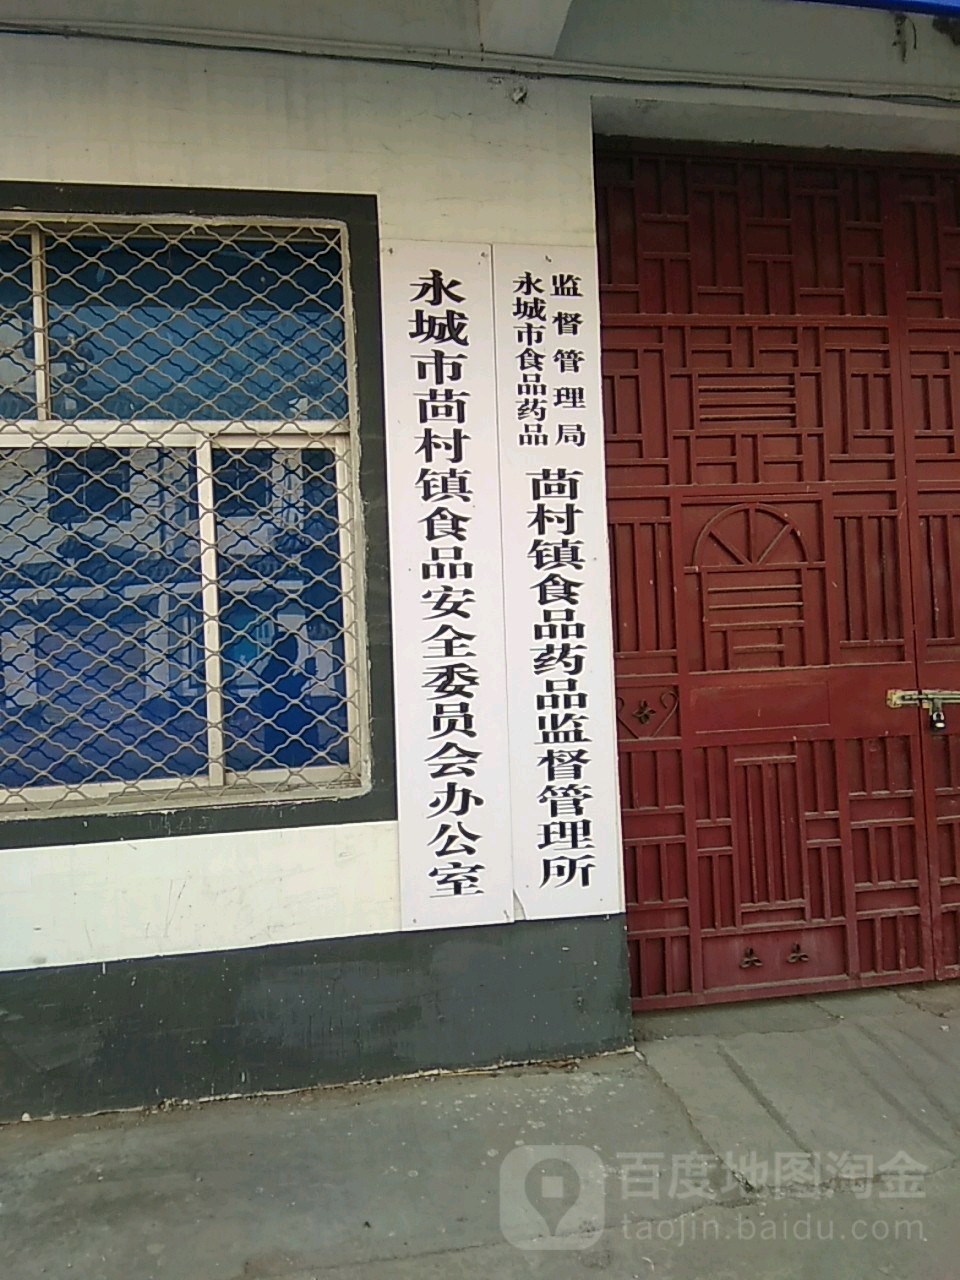 永城市茴村镇食品安全委员会办公室
永城市食品药品
监督管理局
茴村镇食品药品监督管理所
百度地图淘金
taojin.baidu.com